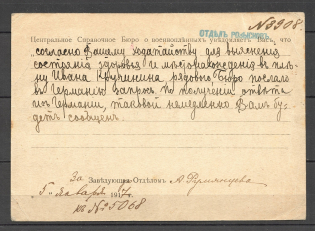 № 3908.
Центральное Справочное Бюро о военноплѣнныхъ увѣдомляетъ Васъ, что
ОТДѢЛЪ
"согласно Вашему ходатайству для выясненія
состоянія здоровья и мѣстонахожденія въ плѣ-
ну Ивана рядового Бюро послало
въ Германію запросъ. По полученіи отвѣта
изъ Германіи, таковой немедленно Вамъ бу-
детъ сообщенъ.
За Завѣдующая Отдѣломъ А. Румянцева
5 - января 1917 г.
№ 5068